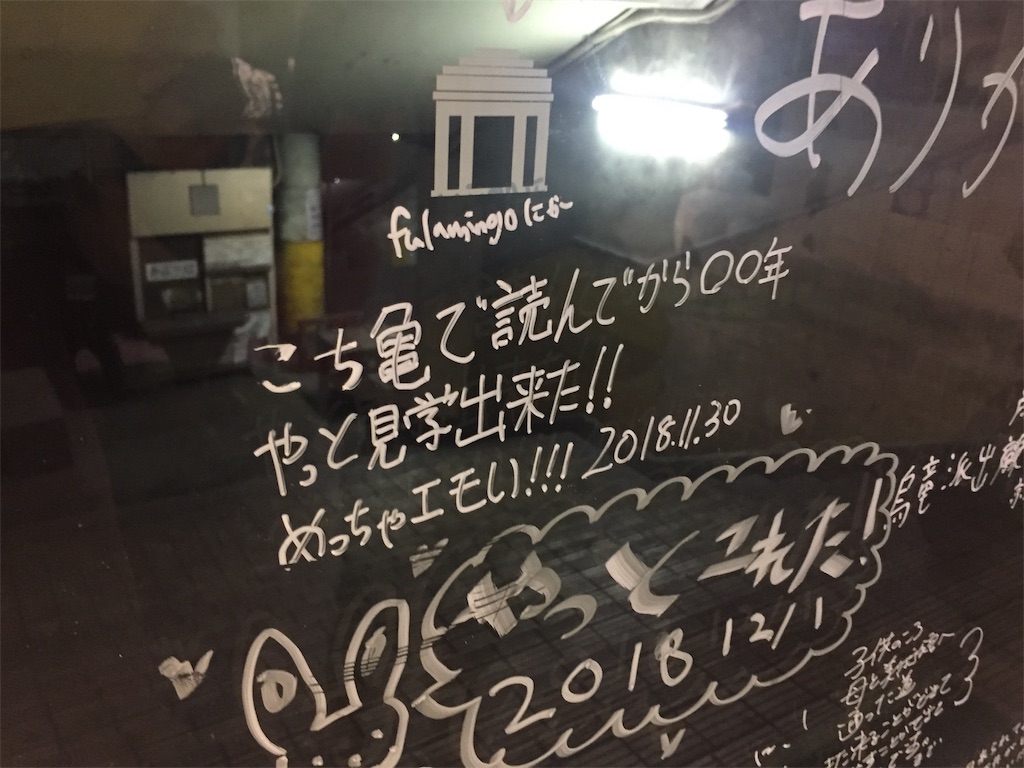 ありが
fulamingoにか〜
こち亀で読んでから〇〇年
やっと見学出来た!!
めっちゃエモい!!! 2018.11.30
やっとこれた!
2018 12/1
派出
子供のころ
母と美術館へ
通った道